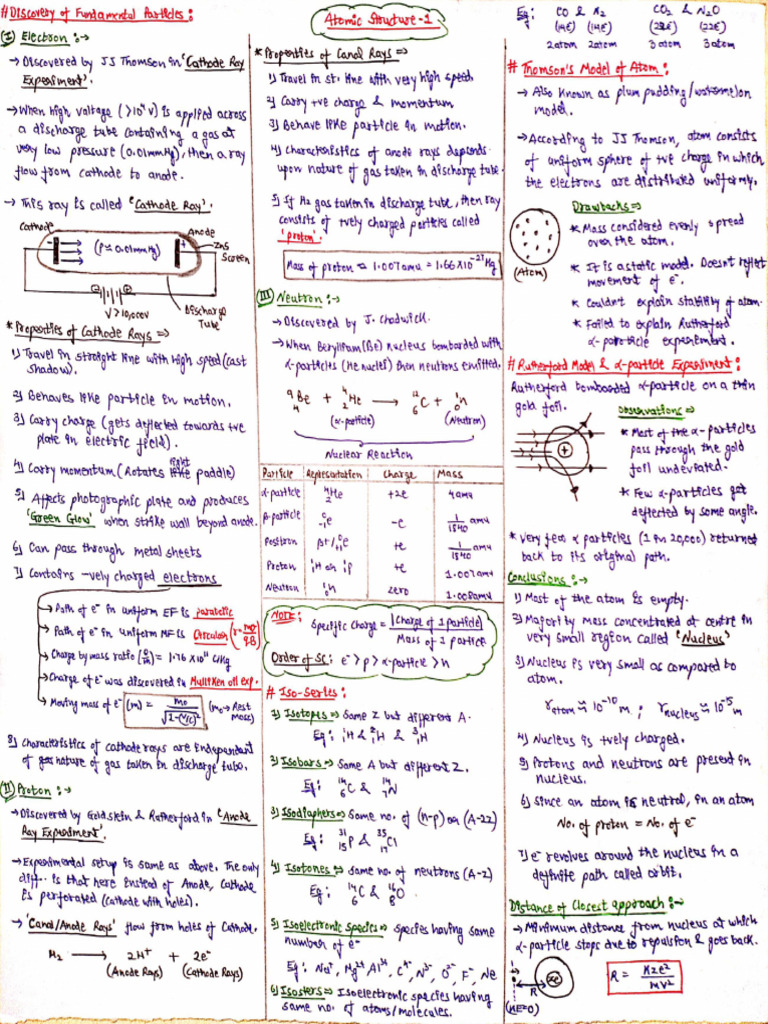 Atomic Structure-1
# Discovery of Fundamental Particles:
(I) Electron :→
→ Discovered by JJ Thomson in 'Cathode Ray
Experiment'.
→ When high voltage (>10⁴ V) is applied across
a discharge tube containing a gas at
very low pressure (0.01mmHg), then a ray
flow from cathode to anode.
→ This ray is called 'Cathode Ray'.
Cathode
Anode
(P ≈ 0.01mmHg)
ZnS
Screen
V > 10,000V
Discharge
Tube
* Properties of Cathode Rays ⇒
1) Travel in straight line with high speed (cast
shadow).
2) Behaves like particle in motion.
3) Carry charge (gets deflected towards +ve
plate in electric field).
4) Carry momentum (Rotates light like paddle)
5) Affects photographic plate and produces
'Green Glow' when strike wall beyond anode.
6) Can pass through metal sheets
7) Contains -vely charged electrons
→ Path of e⁻ in uniform EF is parabolic
→ Path of e⁻ in uniform MF is Circular (r = mv/qB)
→ Charge by mass ratio (e/m) = 1.76 X 10¹¹ C/Kg
→ Charge of e⁻ was discovered in Mulliken oil exp.
→ Moving mass of e⁻ (m) = m₀/√1-(v/c)² (m₀→ Rest
mass)
8) Characteristics of cathode rays are independent
of gas nature of gas taken in discharge tube.
(II) Proton :→
→ Discovered by Goldstein & Rutherford in 'Anode
Ray Experiment'.
→ Experimental setup is same as above. The only
diff.. is that here instead of Anode, Cathode
is perforated (cathode with holes).
→ 'Canal/Anode Rays' flow from holes of Cathode.
H₂ → 2H⁺ + 2e⁻
(Anode Rays) (Cathode Rays)
* Properties of Canal Rays ⇒
1) Travel in st. line with very high speed.
2) Carry +ve charge & momentum
3) Behave like particle in motion.
4) Characteristics of anode rays depends
upon nature of gas taken in discharge tube.
5) If H₂ gas taken in discharge tube, then ray
consists of +vely charged particles called
'proton'.
Mass of proton = 1.007amu = 1.66X10⁻²⁷ Kg
(III) Neutron :→
→ Discovered by J. Chadwick.
→ When Beryllium (Be) nucleus bombarded with
α-particles (He nuclei) then neutrons emitted.
⁹₄Be + ⁴₂He → ¹²₆C + ¹₀n
(α-particle) (Neutron)
Nuclear Reaction
Particle Representation Charge Mass
α-particle ⁴₂He +2e 4amu
β-particle ⁰₋₁e -e 1/1840 amu
Positron β+/⁰₊₁e +e 1/1840 amu
Proton ¹₁H or ¹₁P +e 1.007amu
Neutron ¹₀n zero 1.008amu
Note:
Specific Charge = |Charge of 1 particle| / Mass of 1 particle
Order of SC: e⁻ > p > α-particle > n
# Iso-Series:
1) Isotopes ⇒ Same Z but different A.
Eg: ¹₁H & ²₁H & ³₁H
2) Isobars ⇒ Same A but different Z.
Eg: ¹⁴₆C & ¹⁴₇N
3) Isodiaphers ⇒ Same no. of (n-p) or (A-2Z)
Eg: ³¹₁₅P & ³⁵₁₇Cl
4) Isotones ⇒ same no. of neutrons (A-Z)
Eg: ¹⁴₆C & ¹⁶₈O
5) Isoelectronic Species ⇒ species having same
number of e⁻
Eg: Na⁺, Mg²⁺ Al³⁺, C⁴⁻, N³⁻, O²⁻, F⁻, Ne
6) Isosters ⇒ Isoelectronic species having
same no. of atoms/molecules.
Eg: CO & N₂ CO₂ & N₂O
(14e) (14e) (22e) (22e)
2atom 2atom 3atom 3atom
# Thomson's Model of Atom:
→ Also known as plum pudding/watermelon
model.
→ According to JJ Thomson, atom consists
of uniform sphere of +ve charge in which
the electrons are distributed uniformly.
(Atom)
Drawbacks ⇒
* Mass considered evenly spread
over the atom.
* It is a static model. Doesn't reflect
movement of e⁻.
* Couldn't explain stability of atom.
* Failed to explain Rutherford
α-particle experiement.
# Rutherford Model & α-particle Experiment:
Rutherford bombarded α-particle on a thin
gold foil.
Observations ⇒
* Most of the α-particles
pass through the gold
foil undeviated.
* Few α-particles got
deflected by some angle.
* Very few α particles (1 in 20,000) returned
back to its original path.
Conclusions :→
1) Most of the atom is empty.
2) Majority by mass concentrated at centre in
very small region called 'Nucleus'
3) Nucleus is very small as compared to
atom.
r atom ≈ 10⁻¹⁰ m ; r nucleus ≈ 10⁻¹⁵ m
4) Nucleus is +vely charged.
5) Protons and neutrons are present in
nucleus.
6) Since an atom is neutral, in an atom
No. of proton = No. of e⁻
7) e⁻ revolves around the nucleus in a
definite path called orbit.
Distance of Closest approach :→
→ Minimum distance from nucleus at which
α-particle stops due to repulsion & goes back.
R
(KE=0)
R = KZe²/mv²